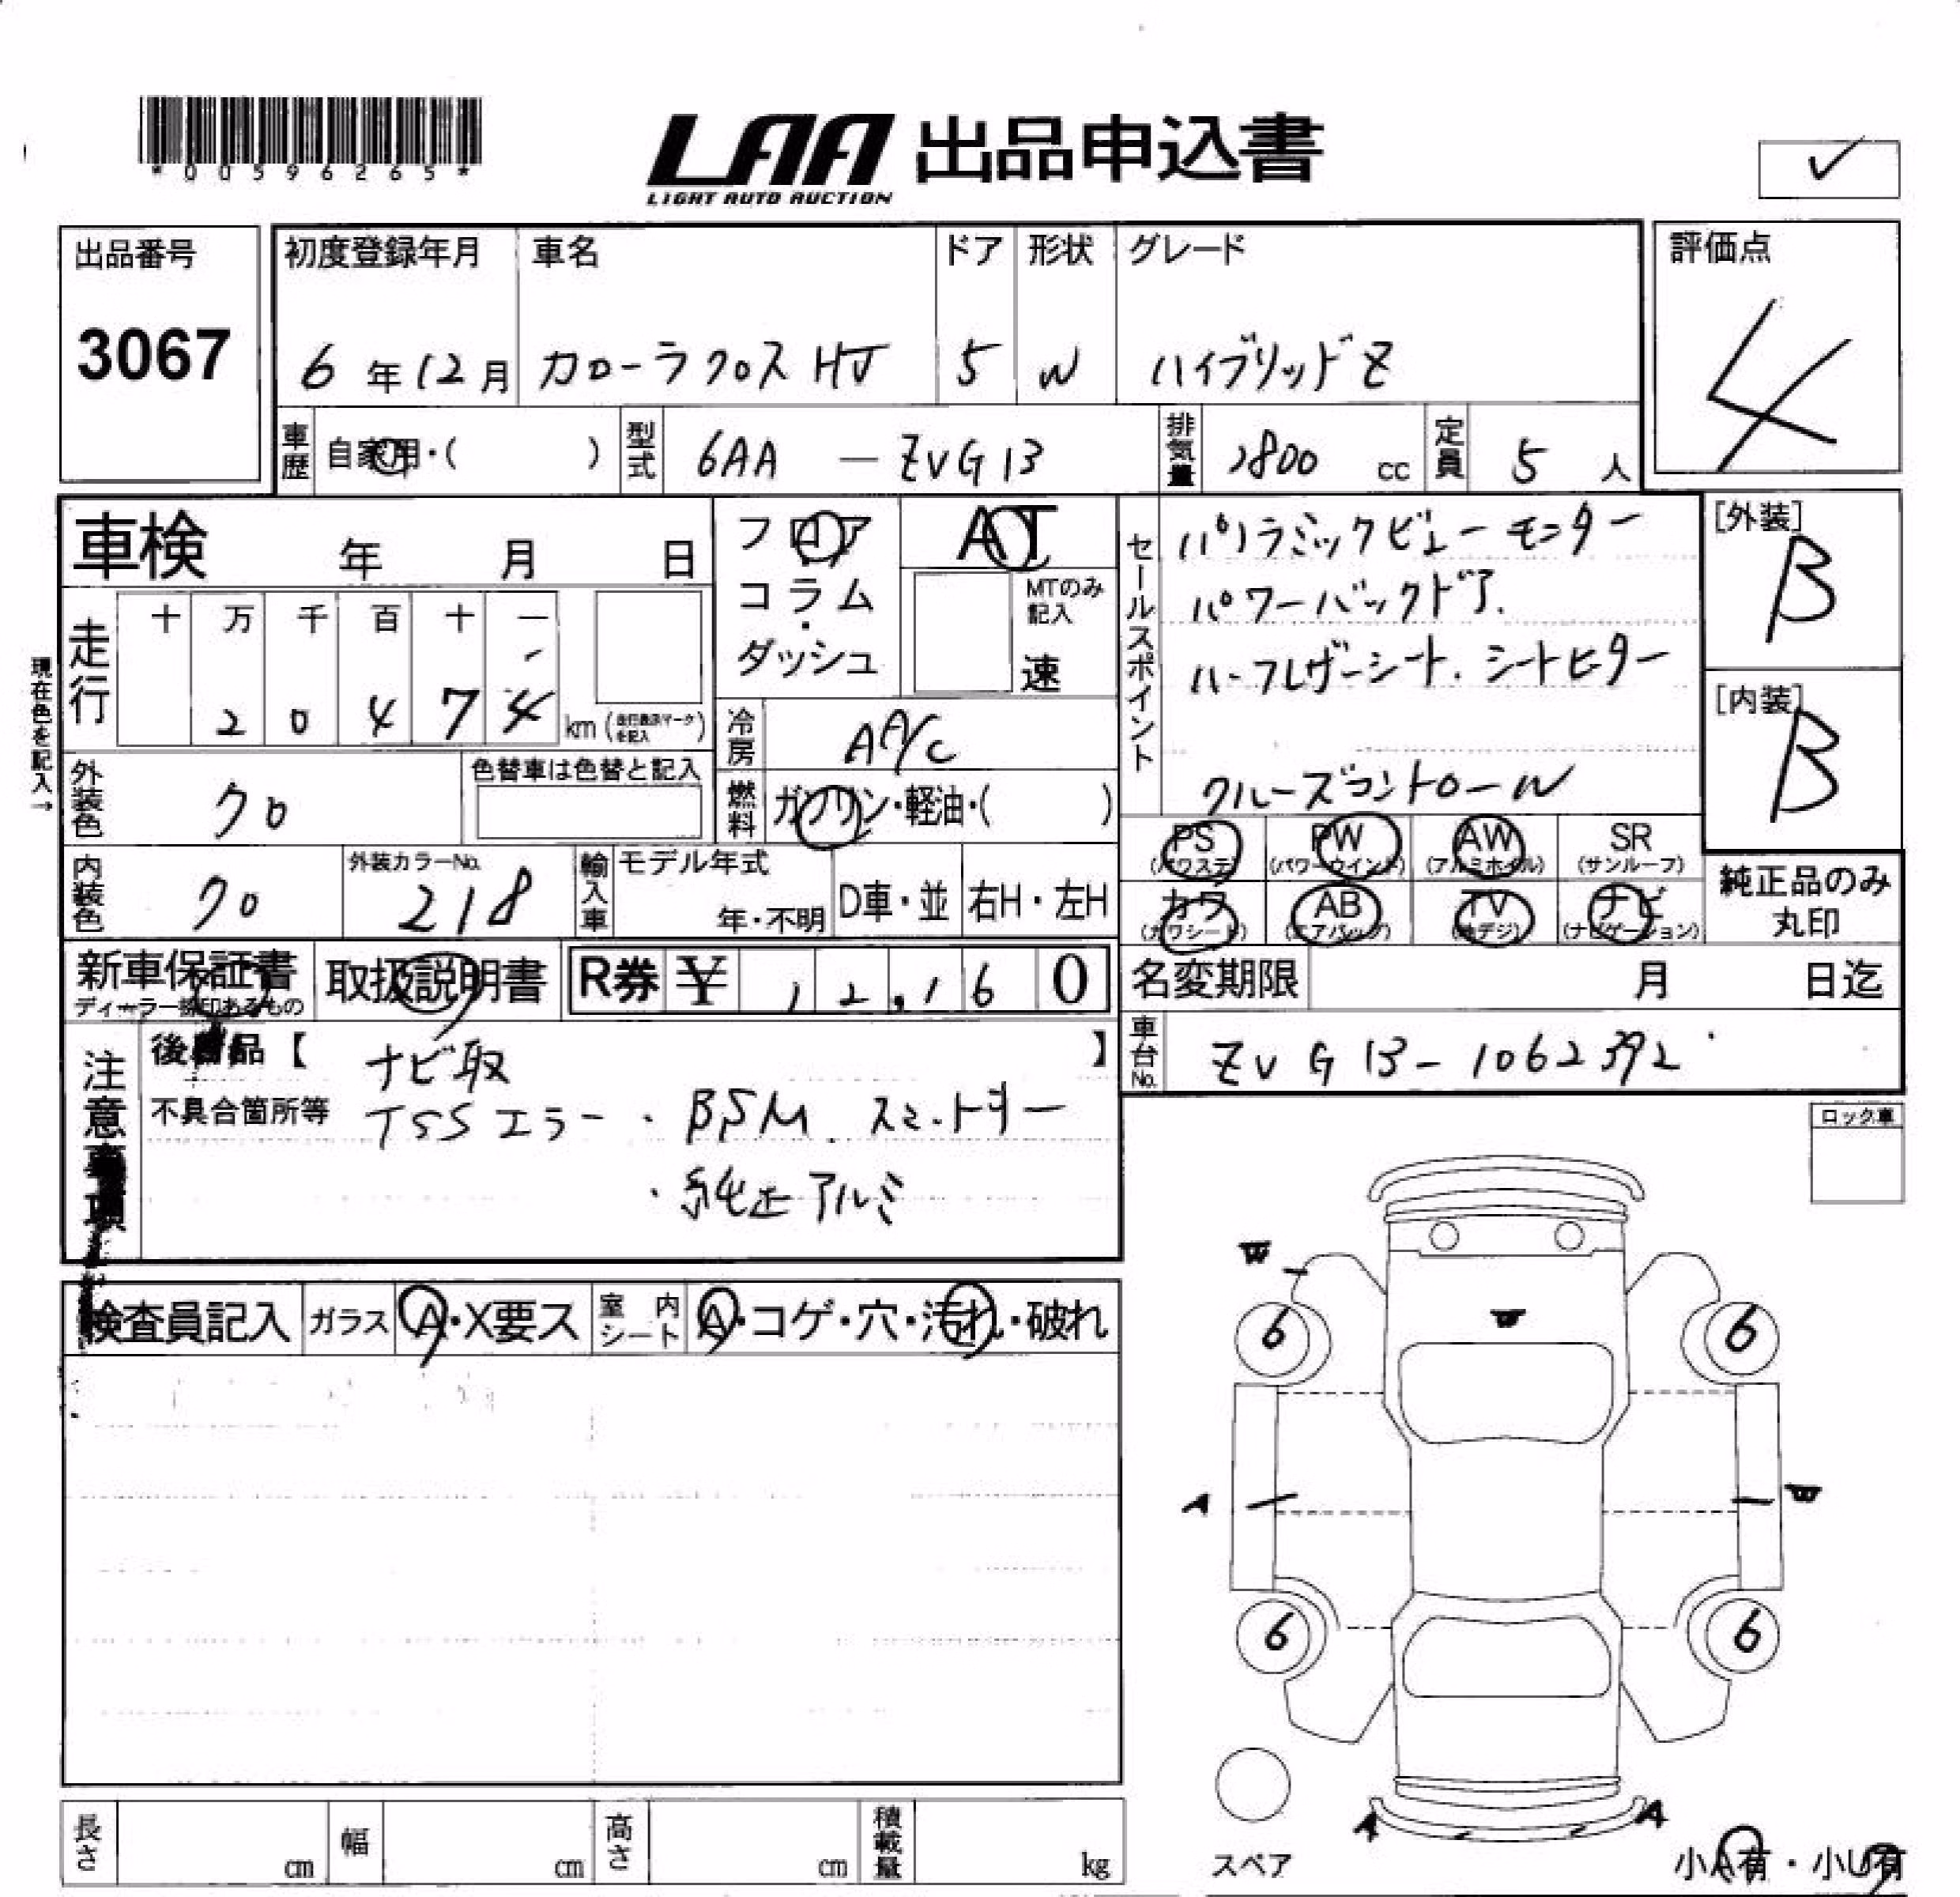 *00596265*
LAA 出品申込書
LIGHT AUTO AUCTION
✓
出品番号
3067
初度登録年月 車名 ドア 形状 グレード
6年12月 カローラクロス HV 5 W ハイブリッドZ
評価点
4
車歴 自家用・( ) 型式 6AA — ZVG13 排気量 1800 cc 定員 5 人
車検 年 月 日
フロア・コラム・ダッシュ
AT
MTのみ記入
速
現在色を記入→
走行 十 万 千 百 十 一
2 0 4 7 4 km (走行表示マークを記入)
冷房 AA/C
燃料 ガソリン・軽油・( )
外装色 クロ
色替車は色替と記入
内装色 クロ
外装カラーNo.
218
輸入車 モデル年式
年・不明 D車・並 右H・左H
セールスポイント
パノラミックビューモニター
パワーバックドア.
ハーフレザーシート. シートヒーター
クルーズコントロール
[外装]
B
[内装]
B
PS (パワステ) PW (パワーウインド) AW (アルミホイル) SR (サンルーフ)
カワ (カワシート) AB (エアバッグ) TV (地デジ) ナビ (ナビゲーション)
純正品のみ丸印
新車保証書
ディーラー捺印あるもの
取扱説明書
R券 ¥ 12,160
名変期限 月 日迄
車台No. ZVG13-1062392
注意事項
後着品【 ナビ取 】
不具合箇所等 TSSエラー ・BSM. スマートキー
・純正アルミ
ロック車
検査員記入 ガラス A・X要ス 室内シート A・コゲ・穴・汚れ・破れ
W
W
6 6
A W
6 6
A A
スペア
小A有・小U有
長さ cm 幅 cm 高さ cm 積載量 kg